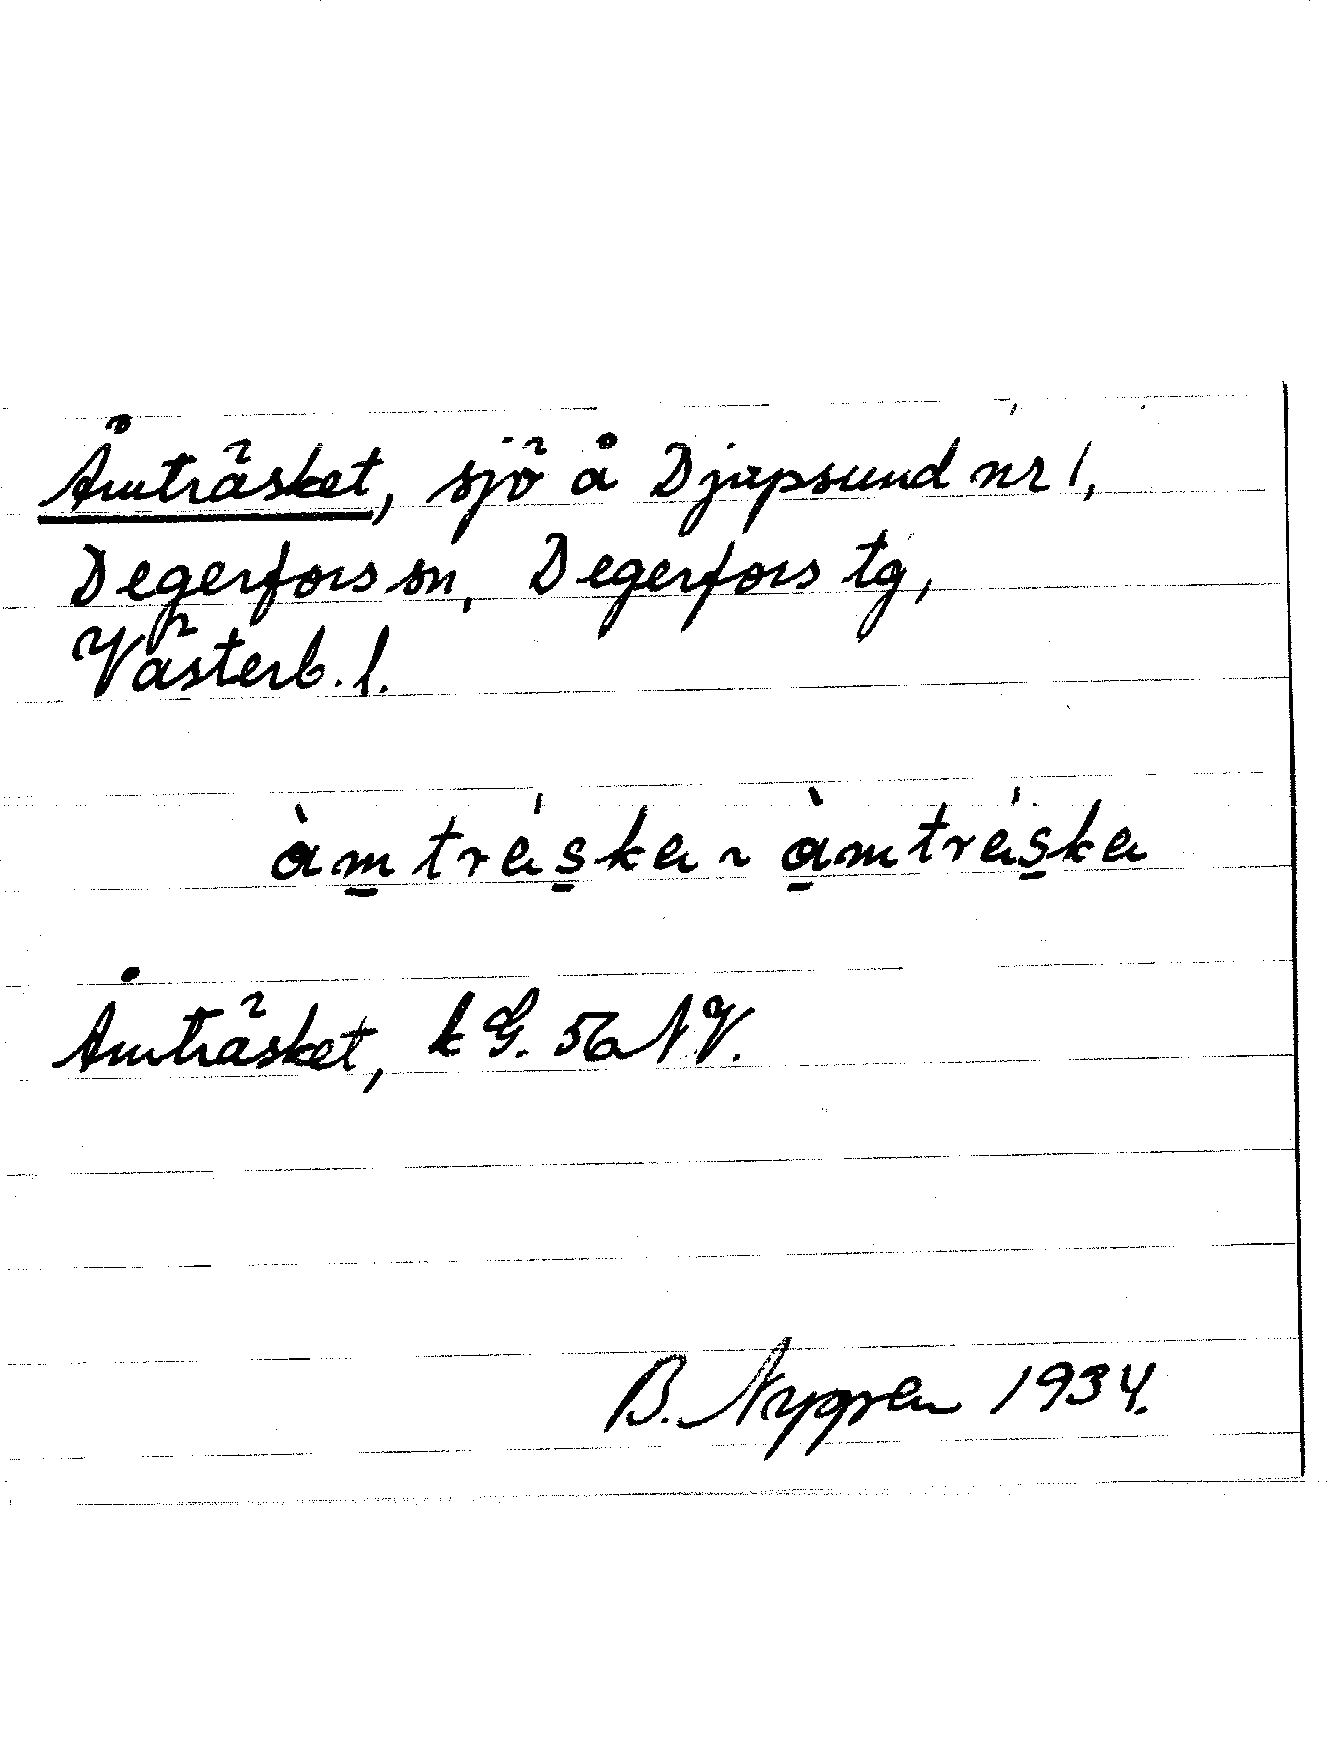 Åmträsket, sjö å Djupsund nr 1,
Degerfors sn, Degerfors tg,
Västerb. l.
àmtrǽska ~ àmtrǽska
Åmträsket, k G. 56 NV.
B. Nygren 1934.